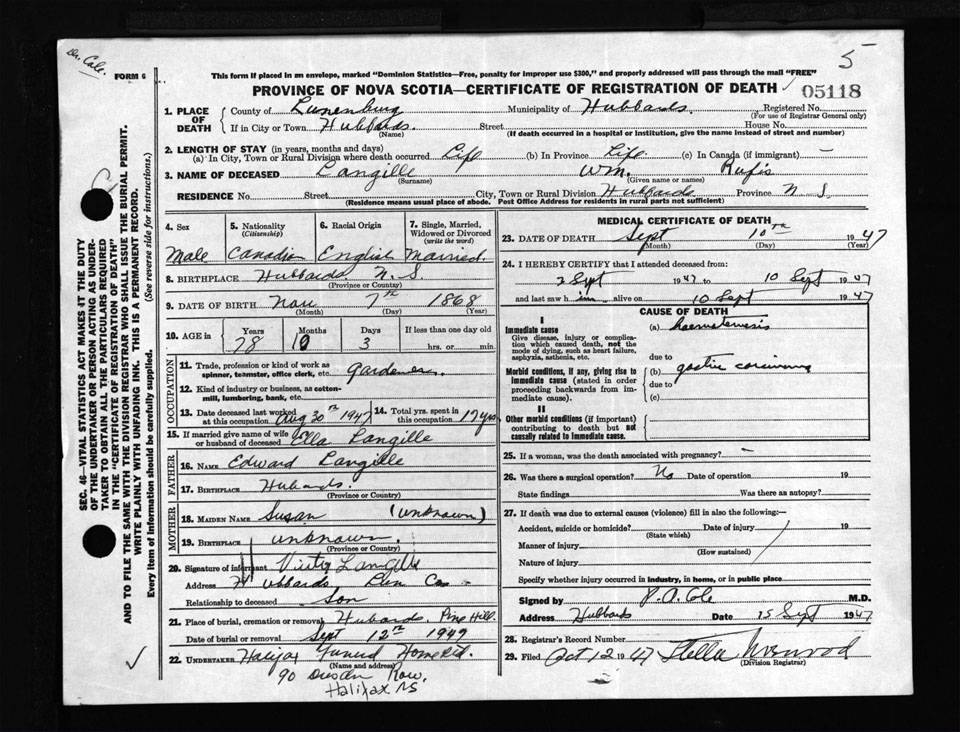 Dr. Cole.
5
FORM 6
This form if placed in an envelope, marked "Dominion Statistics—Free, penalty for improper use $300," and properly addressed will pass through the mail "FREE"
PROVINCE OF NOVA SCOTIA—CERTIFICATE OF REGISTRATION OF DEATH
05118
SEC. 46—VITAL STATISTICS ACT MAKES IT THE DUTY
OF THE UNDERTAKER OR PERSON ACTING AS UNDER-
TAKER TO OBTAIN ALL THE PARTICULARS REQUIRED
IN THE "CERTIFICATE OF REGISTRATION OF DEATH"
AND TO FILE THE SAME WITH THE DIVISION REGISTRAR WHO SHALL ISSUE THE BURIAL PERMIT.
WRITE PLAINLY WITH UNFADING INK. THIS IS A PERMANENT RECORD.
Every item of Information should be carefully supplied. (See reverse side for instructions.)
1. PLACE OF DEATH
County of Lunenburg Municipality of Hubbards Registered No.
(For use of Registrar General only)
If in City or Town Hubbards. Street House No.
(Name) (If death occurred in a hospital or institution, give the name instead of street and number)
2. LENGTH OF STAY (in years, months and days)
(a) In City, Town or Rural Division where death occurred Life (b) In Province Life (c) In Canada (if immigrant) —
3. NAME OF DECEASED Langille Wm. Rufis
(Surname) (Given name or names)
RESIDENCE No. Street City, Town or Rural Division Hubbards Province N S
(Residence means usual place of abode. Post Office Address for residents in rural parts not sufficient)
4. Sex 5. Nationality (Citizenship) 6. Racial Origin 7. Single, Married, Widowed or Divorced (write the word)
Male Canadian English Married.
8. BIRTHPLACE Hubbards N.S.
(Province or Country)
9. DATE OF BIRTH Nov 7th 1868
(Month) (Day) (Year)
10. AGE in Years Months Days If less than one day old
78 10 3 hrs. or min.
OCCUPATION
11. Trade, profession or kind of work as spinner, teamster, office clerk, etc. Gardener.
12. Kind of industry or business, as cotton-mill, lumbering, bank, etc.
13. Date deceased last worked at this occupation Aug 30th 1947 14. Total yrs. spent in this occupation 17 yrs.
15. If married give name of wife or husband of deceased Ella Langille
FATHER
16. NAME Edward Langille
17. BIRTHPLACE Hubards.
(Province or Country)
MOTHER
18. MAIDEN NAME Susan (unknown)
19. BIRTHPLACE unknown.
(Province or Country)
20. Signature of informant Langille
Address Hubbards, Lun Co
Relationship to deceased Son
21. Place of burial, cremation or removal Hubbards Pine Hill.
Date of burial or removal Sept 12th 1947
22. UNDERTAKER Halifax Funeral Home Ltd.
(Name and address)
90 Susan Row,
Halifax NS
MEDICAL CERTIFICATE OF DEATH
23. DATE OF DEATH Sept 10th 1947
(Month) (Day) (Year)
24. I HEREBY CERTIFY that I attended deceased from:
2 Sept 1947 to 10 Sept 1947
and last saw him alive on 10 Sept 1947
CAUSE OF DEATH
I
Immediate cause
Give disease, injury or complication which caused death, not the mode of dying, such as heart failure, asphyxia, asthenia, etc.
(a) haematemesis
due to
Morbid conditions, if any, giving rise to immediate cause (stated in order proceeding backwards from immediate cause).
(b) gastric carcinoma
due to
(c)
II
Other morbid conditions (if important) contributing to death but not causally related to immediate cause.
25. If a woman, was the death associated with pregnancy? —
26. Was there a surgical operation? No Date of operation 19
State findings Was there an autopsy?
27. If death was due to external causes (violence) fill in also the following:—
Accident, suicide or homicide? Date of injury 19
(State which)
Manner of injury
(How sustained)
Nature of injury
Specify whether injury occurred in industry, in home, or in public place
Signed by P.A. Cole M.D.
Address Hubbards Date 15 Sept 1947
28. Registrar's Record Number
29. Filed Oct 12 1947 Stella
(Division Registrar)